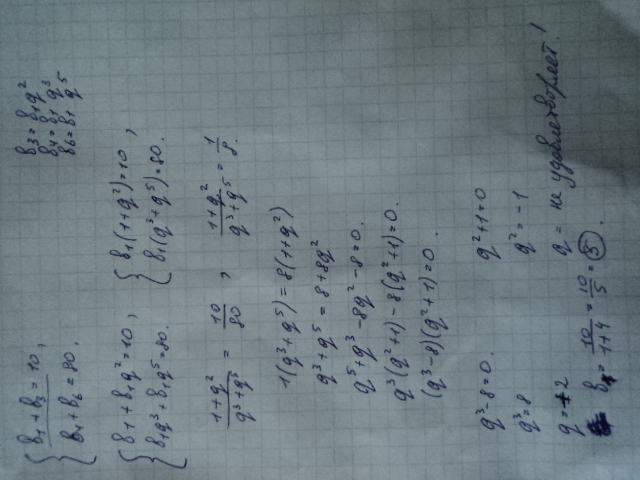 { b₁ + b₃ = 10,
b₁ + b₆ = 80.
b₃ = b₁q²
b₄ = b₁q³
b₆ = b₁q⁵
{ b₁ + b₁q² = 10,
b₁q³ + b₁q⁵ = 80.
{ b₁(1+q²) = 10,
b₁(q³+q⁵) = 80.
(1+q²)/(q³+q⁵) = 10/80 , (1+q²)/(q³+q⁵) = 1/8.
1(q³+q⁵) = 8(1+q²)
q³+q⁵ = 8+8q²
q⁵+q³-8q²-8=0.
q³(q²+1)-8(q²+1)=0.
(q³-8)(q²+1)=0.
q³-8=0. q²+1=0
q³=8 q²=-1
q=2 q = не удовлетворяет!
b₁ = 10/(1+4) = 10/5 = 5.